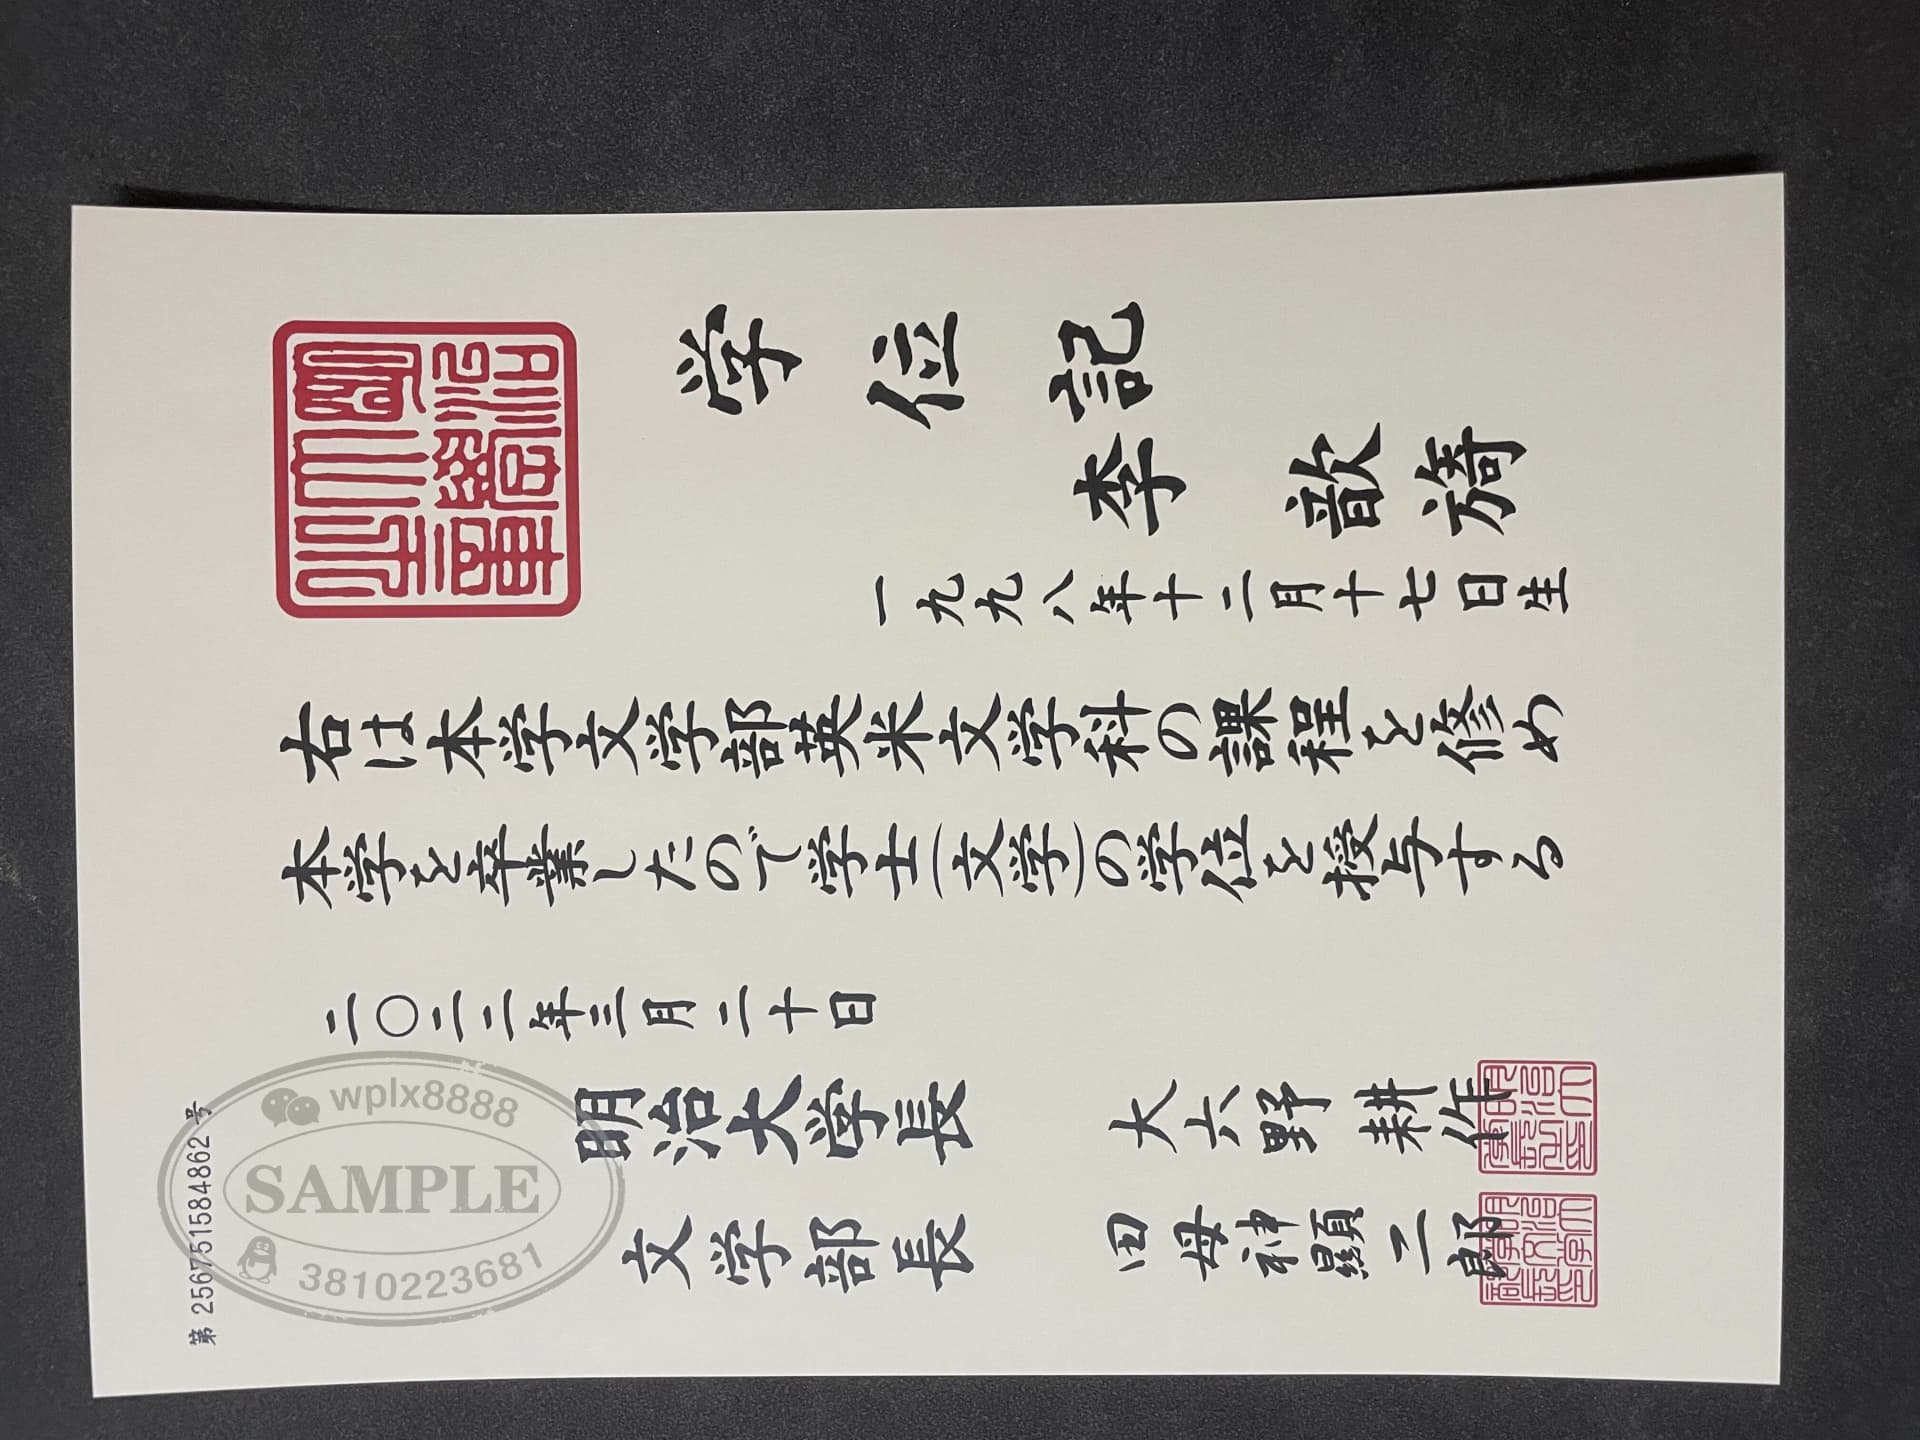 学位記
李 歆旖
一九九八年十二月十七日生
右は本学文学部英米文学科の課程を修め
本学を卒業したので学士(文学)の学位を授与する
二〇二二年三月二十日
明治大学長 大六野 耕作
文学部長 田母神 顯二郎
第 2567515848​62 号
wplx8888
SAMPLE
3810223681